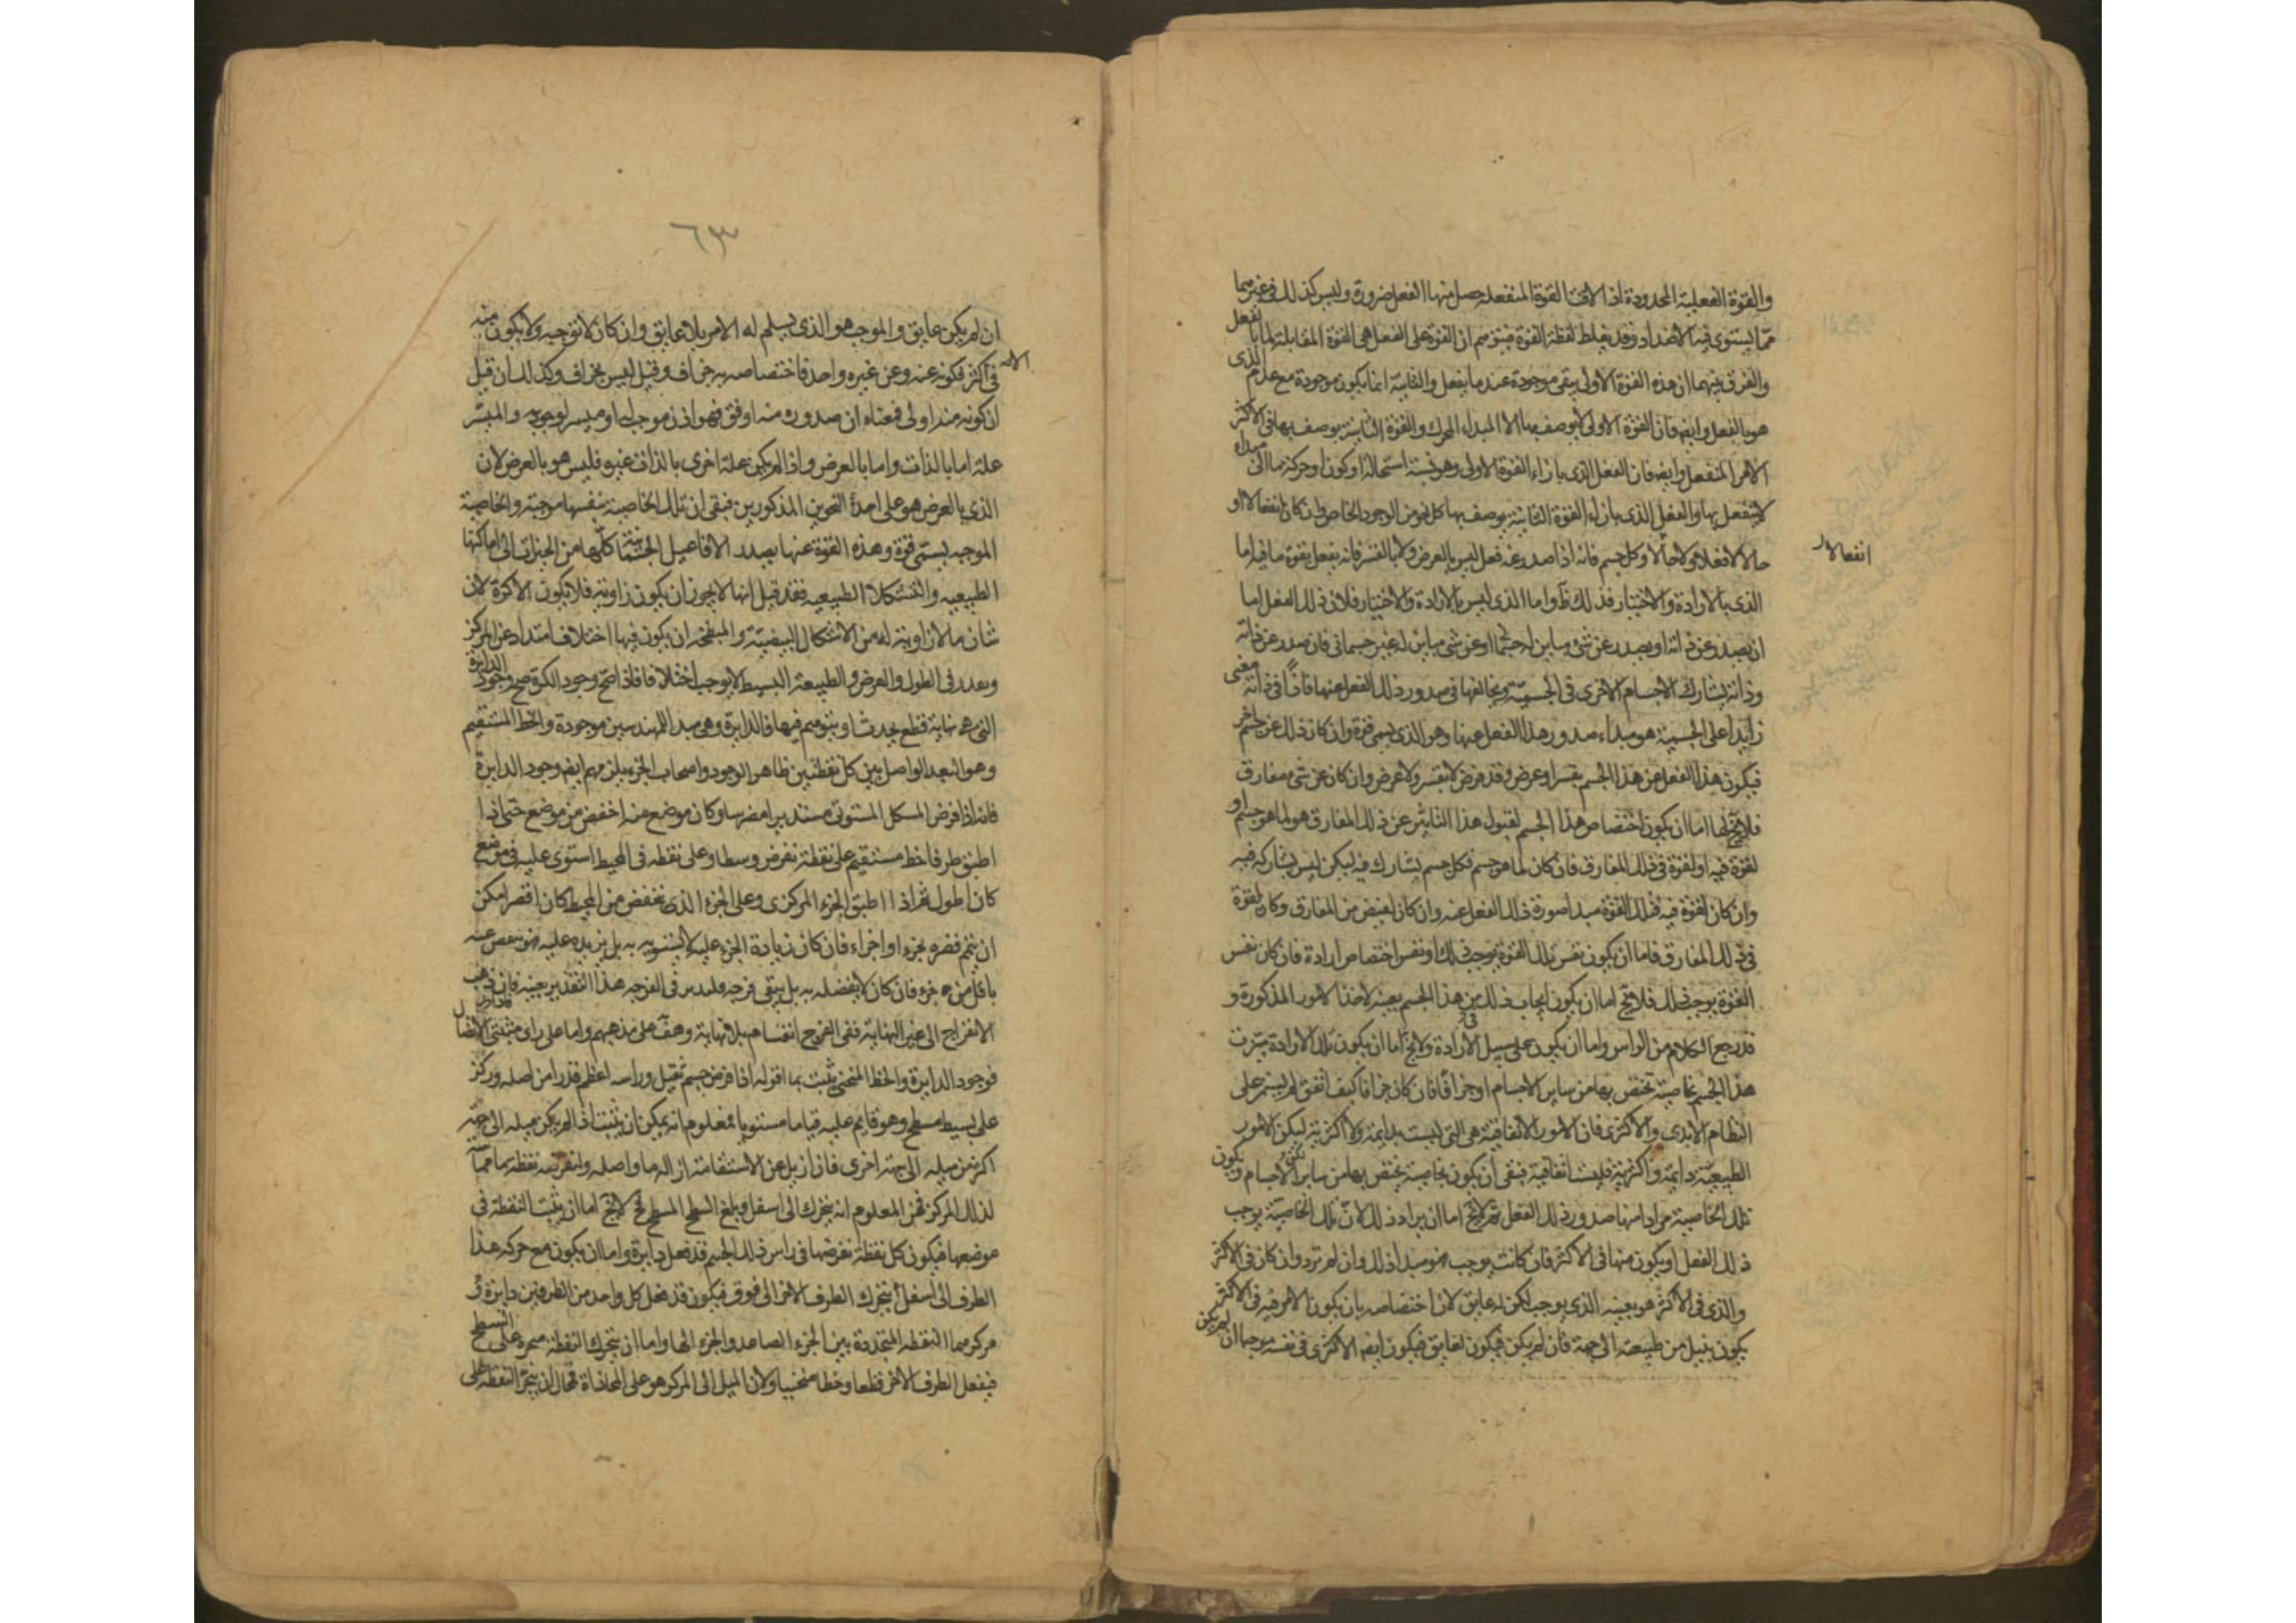 والقوة الفعلية المحدودة اذا لاقت القوة المنفعلة حصل منها الفعل ضرورة وليس كذلك في غيرهما
مما يستوى فيه الاضداد وقد يغلط لفظة القوة فيتوهم ان القوة على الفعل هى القوة المقابلة لما بالفعل
والفرق بينهما ان هذه القوة الاولى يبقى موجودة عند ما يفعل والثانية انما يكون موجودة مع عدم الذى
هو بالفعل وايضا فان القوة الاولى لا يوصف بها الا المبداء المحرك والقوة الثانية يوصف بها فى الاكثر
الامر المنفعل وايضا فان الفعل الذى بازاء القوة الاولى هو نسبة استحالة او كون او حركة ما الى مبداء
لا ينفعل بها والفعل الذى بازاء القوة الثانية يوصف بها كل نحو من الوجود الخاص وان كان انفعالا او
حالا لا فعلا ولا حالا وكل جسم فانه اذا صدر عنه فعل ليس بالعرض ولا بالقسر فانه يفعل بقوة ما فيه اما
انفعالا
الذى بالارادة والاختيار فذلك ظ واما الذى ليس بالارادة والاختيار فلان ذلك الفعل اما
ان يصدر عن ذاته او يصدر عن شئ مباين له جسمانى او عن شئ مباين له غير جسمانى فان صدر عن ذاته
وذاته يشارك الاجسام الاخرى فى الجسمية ويخالفها فى صدور ذلك الفعل عنها فاذا فى ذاته معنى
زايد على الجسمية هو مبداء صدور هذا الفعل عنها وهو الذى يسمى قوة وان كان ذلك عن جسم اخر
فيكون هذا الفعل عن هذا الجسم بقسر او عرض وقد فرض لا بقسر ولا عرض وان كان عن شئ مفارق
فلا يخ اما ان يكون اختصاص هذا الجسم لقبول هذا التاثير عن ذلك المفارق هو لما هو جسم او
لقوة فيه او لقوة فى ذلك المفارق فان كان لما هو جسم فكل جسم يشارك فيه ليكن ليس يشاركه فيه
وان كان لقوة فيه فتلك القوة مبدا صورة ذلك الفعل عنه وان كان لفيض من المفارق وكان لقوة
فى ذلك المفارق فاما ان يكون نفس تلك القوة يوجب ذلك او نفس اختصاص ارادة فان كان نفس
القوة يوجب ذلك فلا يخ اما ان يكون ايجاب ذلك من هذا الجسم بعينه لاحد الامور المذكورة و
قد رجع الكلام من الراس واما ان يكون على سبيل الارادة ولا يخ اما ان يكون تلك الارادة ميزت
هذا الجسم بخاصية تختص بها من ساير الاجسام او جزافا فان كان جزافا كيف اتفق لم يستمر على
النظام الابدى والاكثرى فان الامور الاتفاقية هى التى ليست بدايمة ولا اكثرية ليكن الامور
الطبيعية دايمة واكثرية فليست اتفاقية فبقى ان يكون بخاصية يختص بها من ساير الاجسام ويكون
تلك الخاصية مرادا منها صدور ذلك الفعل ثم لا يخ اما ان يراد ذلك لان تلك الخاصية يوجب
ذلك الفعل او يكون منها فى الاكثر فان كانت يوجب فهو مبدا ذلك وان لم ترد وان كان فى الاكثر
والذى فى الاكثر هو بعينه الذى يوجب لكن له عايق لان اختصاصه بان يكون الامر فيه فى الاكثر
يكون بميل من طبيعته الى جهة فان لم يكن فيكون لعايق فيكون ايضا الاكثرى فى نفسه موجبا ان لم يكن
٦٣
ان لم يكن عايق والموجب هو الذى يسلم له الامر بلا عايق وان كان لا توجبه ولا يكون منه
فى الاكثر فكونه عنه وعن غيره واحد فاختصاصه به جزاف وقيل ليس بجزاف وكذلك ان قيل
ان كونه منه اولى فمعناه ان صدوره منه اوفق فهو اذن موجب له او ميسر لوجوبه والميسر
علة اما بالذات واما بالعرض واذا لم يكن علة اخرى بالذات غيره فليس هو بالعرض لان
الذى بالعرض هو على احد النحوين المذكورين فبقى ان تلك الخاصية بنفسها موجبة والخاصية
الموجبة يسمى قوة وهذه القوة عنها يصدر الافاعيل الجسمانية كلها من التحيزات الى اماكنها
الطبيعيه والتشكلات الطبيعيه فقد قيل انها لا يجوز ان يكون زاوية فلا يكون الا كرة لان
شان ما لا زاوية له من الاشكال البيضية والمفرطحة ان يكون فيها اختلاف امتداد عن المركز
وبعدد فى الطول والعرض والطبيعة البسيطة لا يوجب اختلافا فاذا صح وجود الكرة صح وجود الدايرة
التى هى نهاية قطع يحدث او يتوهم فيها فالدايرة وهى مبدا للمهندسين موجودة والخط المستقيم
وهو البعد الواصل بين كل نقطتين ظاهر الوجود واصحاب الجزء يلزمهم ايضا وجود الدايرة
فانه اذا فرض الشكل المستوى مستديرا مضرسا وكان موضع منه اخفض من موضع حتى اذا
اطبق طرفا خط مستقيم على نقطة نفرض وسطا وعلى نقطه فى المحيط استوى عليه فى موضع
كان اطول ثم اذا اطبق الجزء المركزى وعلى الجزء الذى ينخفض من المحيط كان اقصر امكن
ان يتمم قصره بجزء او اجزاء فان كان زيادة الجزء عليه لا يسويه به بل يزيد عليه فهو ينقص عنه
باقل من جزء فان كان لا يفضله به بل يبقى فرجه فليدبر فى الفرجه هذا التقدير بعينه فان ذهب
الانفراج الى غير النهاية ففى الفرج انقسام بلا نهاية وهف على مذهبهم واما على راى مثبتى الاتصال
فوجود الدايرة والخط المنحنى يثبت بما اقوله اذا فرض جسم ثقيل وراسه اعظم قدرا من اصله وركز
على بسيط مسطح وهو قايم عليه قياما مستويا فمعلوم انه يمكن ان يثبت اذا لم يكن ميله الى جهة
اكثر من ميله الى جهة اخرى فان ازيل عن الاستقامة
لذلك المركز فمن المعلوم انه يتحرك الى اسفل وبلغ السطح المسطح فح لا يخ اما ان يثبت النقطة فى
موضعها فيكون كل نقطة نفرضها فى راس ذلك الجسم قد فعل دايرة واما ان يكون مع حركة هذا
الطرف الى اسفل يتحرك الطرف الاخر الى فوق فيكون قد فعل كل واحد من الطرفين دايرة و
مركزهما النقطه المتحددة بين الجزء الصاعد والجزء الهابط واما ان يتحرك النقطة منجرة على السطح
فيفعل الطرف الاخر قطعا وخطا منحنيا ولان الميل الى المركز هو على المحاذاة فمحال ان ينجر النقطة على